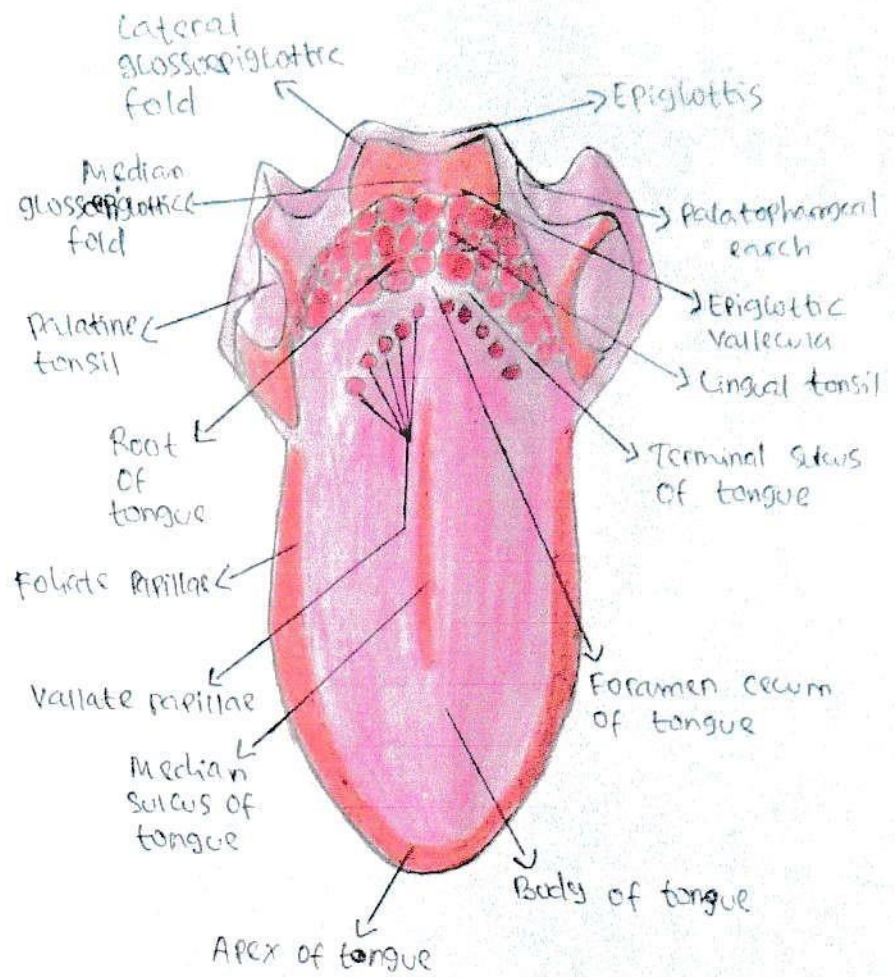 Lateral
glossoepiglottic
fold
Epiglottis
Median
glossoepiglottic
fold
Palatopharyngeal
earch
Palatine
tonsil
Epiglottic
Vallecula
Lingual tonsil
Root
of
tongue
Terminal sulcus
of tongue
Foliate Papillae
Vallate papillae
Foramen cecum
of tongue
Median
sulcus of
tongue
Body of tongue
Apex of tongue